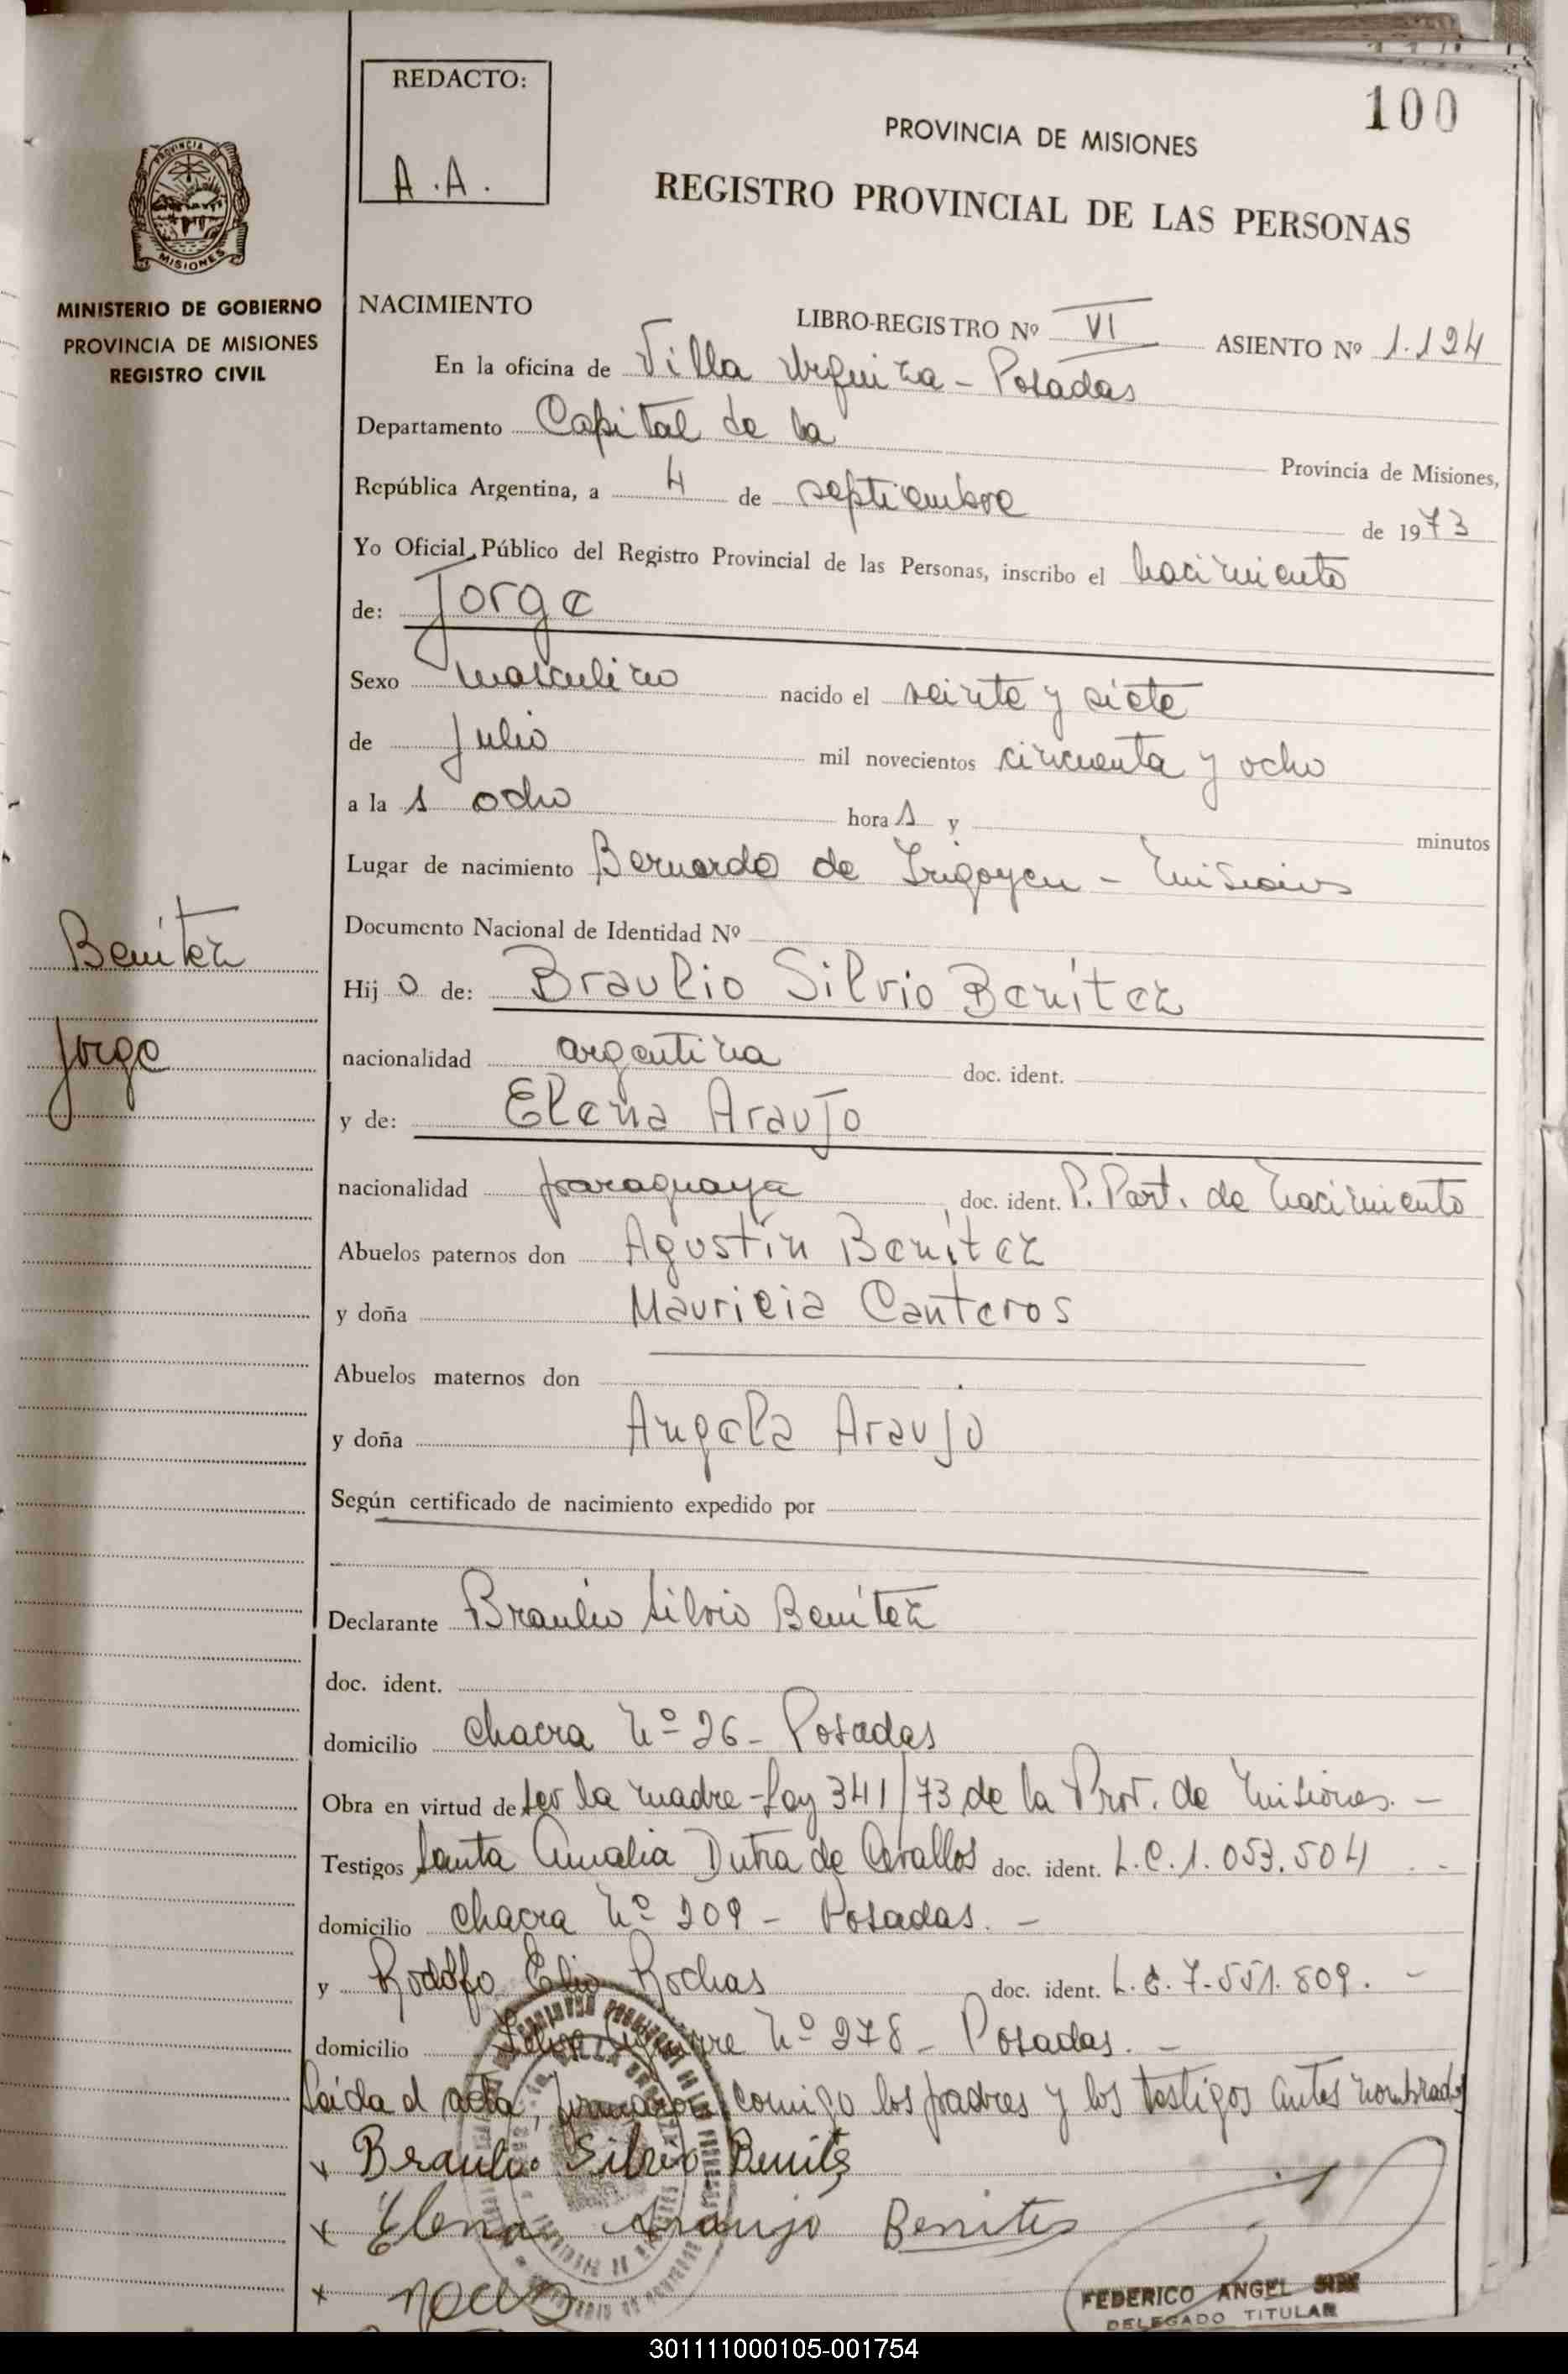 REDACTO:
A.A.
100
PROVINCIA DE MISIONES
REGISTRO PROVINCIAL DE LAS PERSONAS
PROVINCIA DE
MISIONES
MINISTERIO DE GOBIERNO
PROVINCIA DE MISIONES
REGISTRO CIVIL
NACIMIENTO
LIBRO-REGISTRO Nº VI ASIENTO Nº 1.124
En la oficina de Villa Urquiza - Posadas
Departamento Capital de la Provincia de Misiones,
República Argentina, a 4 de septiembre de 1973
Yo Oficial Público del Registro Provincial de las Personas, inscribo el nacimiento
de: Jorge
Sexo masculino nacido el veinte y siete
de Julio mil novecientos cincuenta y ocho
a la s ocho hora s y minutos
Lugar de nacimiento Bernardo de Irigoyen - Misiones
Documento Nacional de Identidad Nº
Benítez
Jorge
Hij o de: Braulio Silvio Benítez
nacionalidad argentina doc. ident.
y de: Elena Araujo
nacionalidad paraguaya doc. ident. P. Part. de nacimiento
Abuelos paternos don Agustín Benítez
y doña Mauricia Canteros
Abuelos maternos don
y doña Angela Araujo
Según certificado de nacimiento expedido por
Declarante Braulio Silvio Benítez
doc. ident.
domicilio Chacra Nº 26 - Posadas
Obra en virtud de ser la madre - Ley 341/73 de la Prov. de Misiones. -
Testigos Santa Amalia Dutra de doc. ident. L.C. 1.053.504
domicilio Chacra Nº 209 - Posadas. -
y Rodolfo Elio Rochas doc. ident. L.E. 7.551.809. -
domicilio Nº 278 - Posadas. -
Leída el acta, firmaron conmigo los padres y los testigos antes nombrados
x Braulio Silvio Benits
x Elena Araujo Benites
x
FEDERICO ANGEL
DELEGADO TITULAR
301111000105-001754